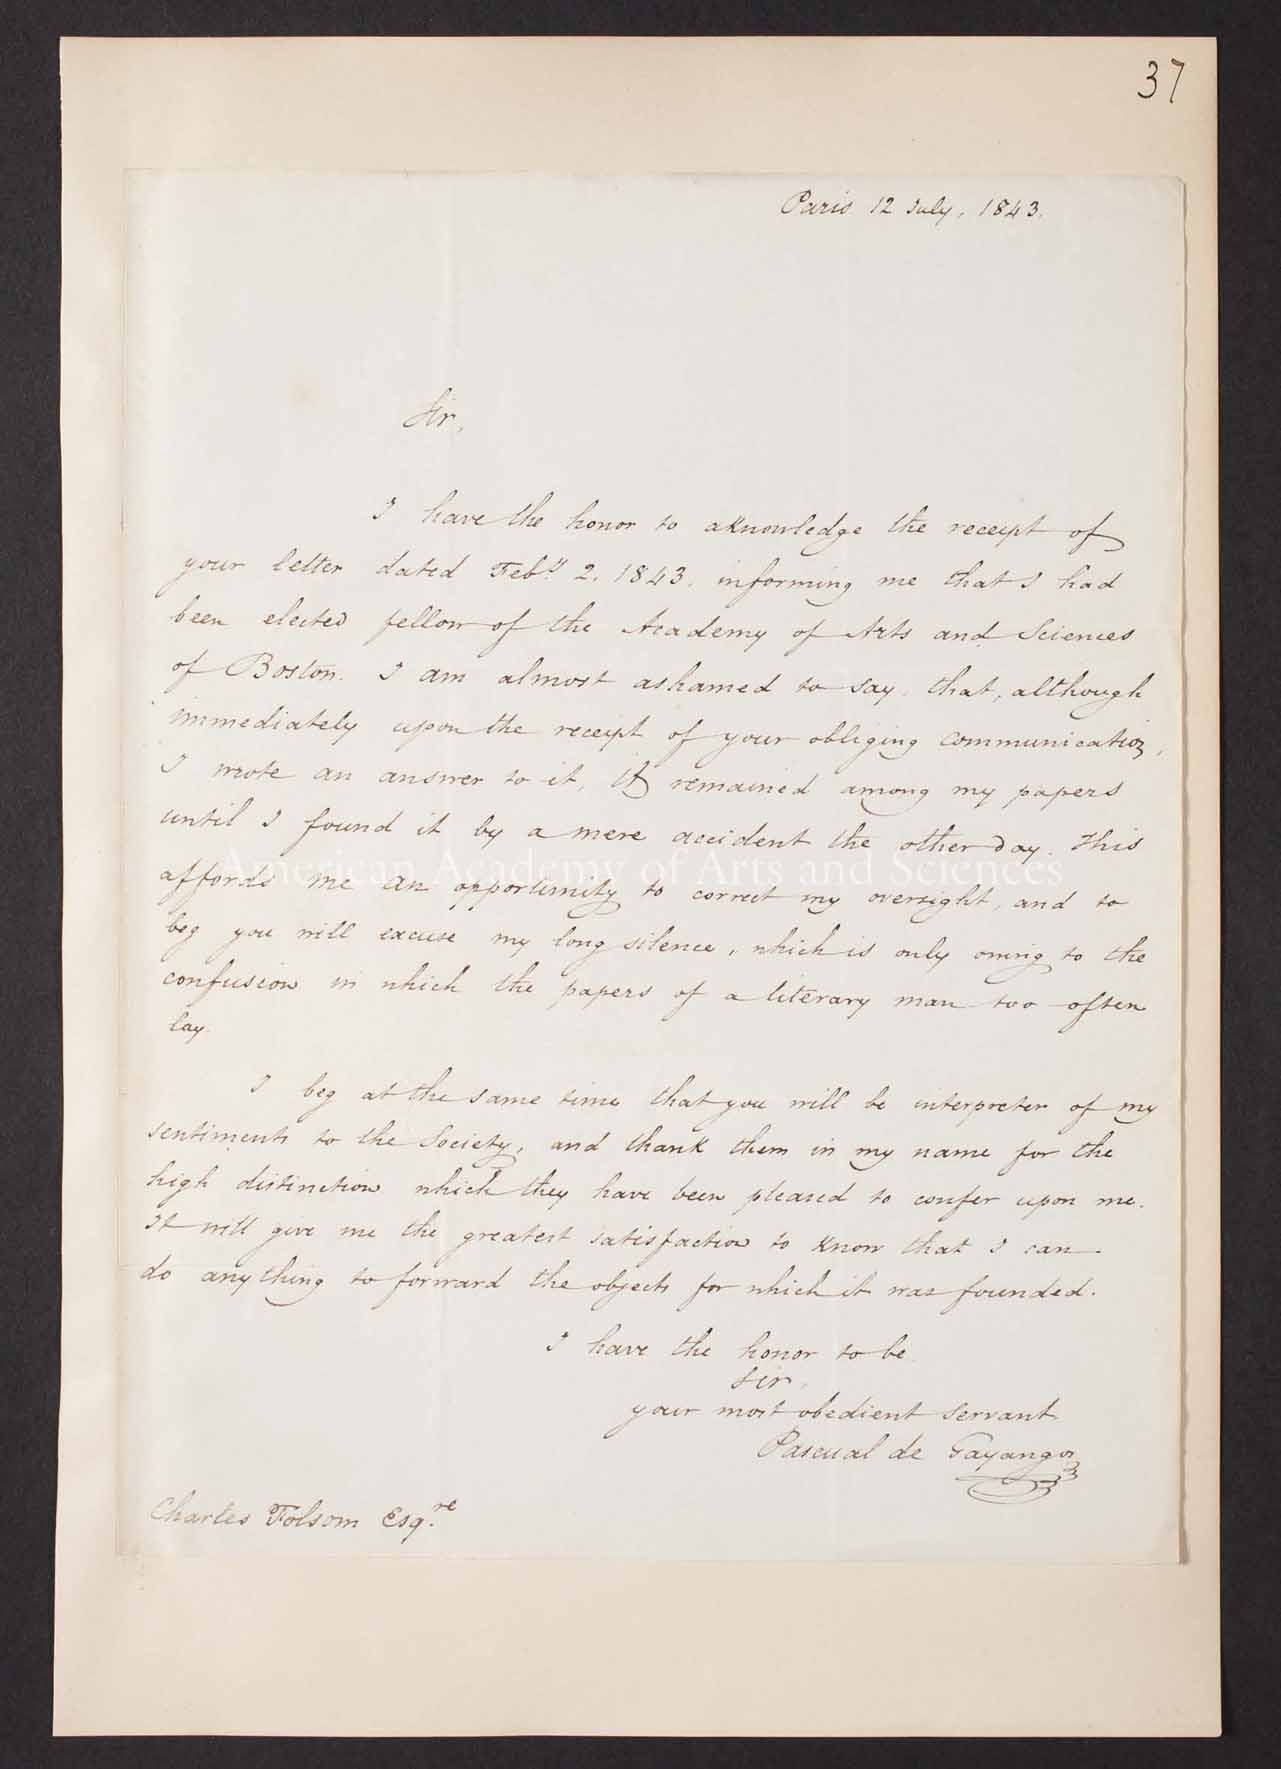 37
Paris 12 July, 1843.
Sir,
I have the honor to aknowledge the receipt of
your letter dated Feb.y 2. 1843. informing me that I had
been elected fellow of the Academy of Arts and Sciences
of Boston. I am almost ashamed to say that, although
immediately upon the receipt of your obliging communication,
I wrote an answer to it, it remained among my papers
until I found it by a mere accident the other day. This
American Academy of Arts and Sciences
affords me an opportunity to correct my oversight, and to
beg you will excuse my long silence, which is only owing to the
confusion in which the papers of a literary man too often
lay.
I beg at the same time that you will be interpreter of my
sentiments to the Society, and thank them in my name for the
high distinction which they have been pleased to confer upon me.
It will give me the greatest satisfaction to know that I can
do any thing to forward the objects for which it was founded.
I have the honor to be
Sir,
your most obedient servant
Pascual de Gayangos
Charles Folsom Esq.re